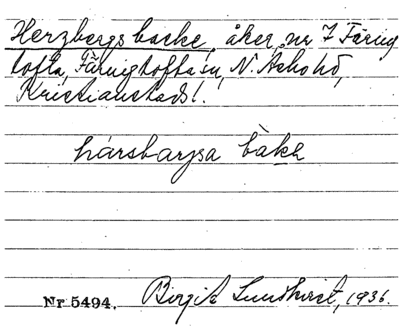 Herzbergsbacke, åker, nr 7 Färing
tofta, Färingtofta sn, N. Åsbo hd,
Kristianstads l.
hársbarysa bakə
Nr 5494. Birgit Lundkvist, 1936.